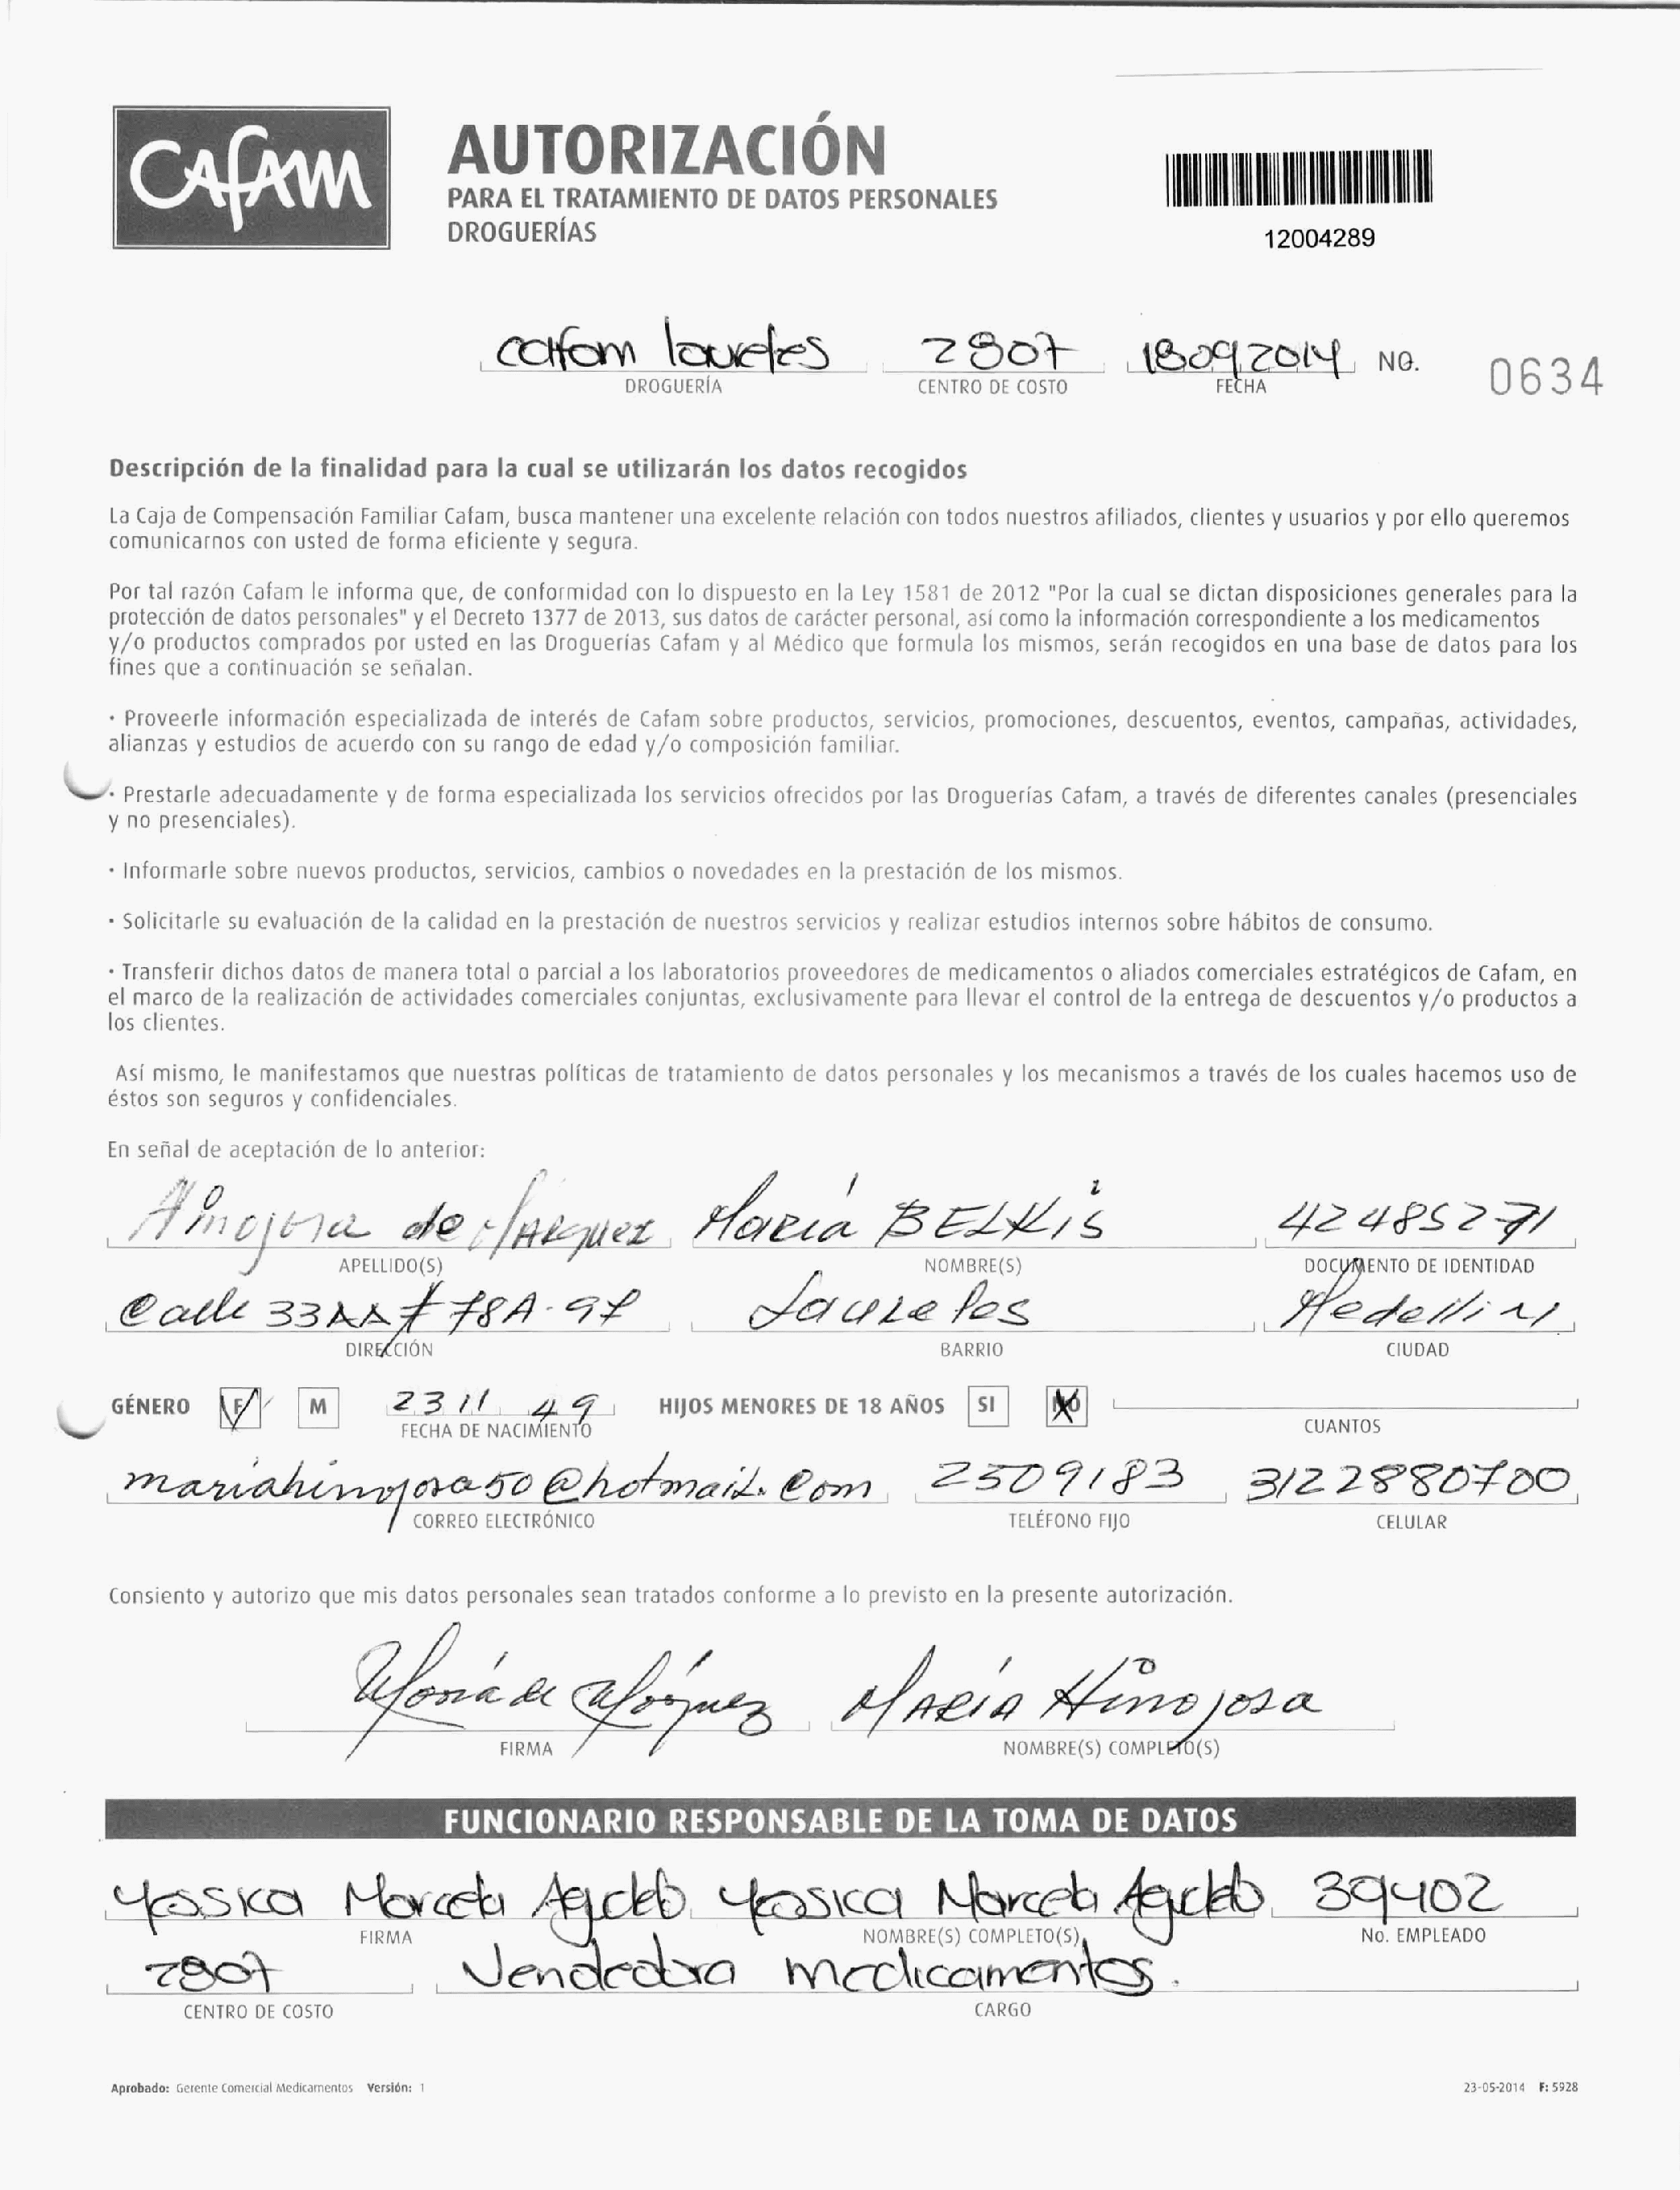 CAfAM
AUTORIZACIÓN
PARA EL TRATAMIENTO DE DATOS PERSONALES
DROGUERÍAS
12004289
cafam laureles 2807 18092014 NO. 0634
DROGUERÍA CENTRO DE COSTO FECHA
Descripción de la finalidad para la cual se utilizarán los datos recogidos
La Caja de Compensación Familiar Cafam, busca mantener una excelente relación con todos nuestros afiliados, clientes y usuarios y por ello queremos
comunicarnos con usted de forma eficiente y segura.
Por tal razón Cafam le informa que, de conformidad con lo dispuesto en la Ley 1581 de 2012 "Por la cual se dictan disposiciones generales para la
protección de datos personales" y el Decreto 1377 de 2013, sus datos de carácter personal, así como la información correspondiente a los medicamentos
y/o productos comprados por usted en las Droguerías Cafam y al Médico que formula los mismos, serán recogidos en una base de datos para los
fines que a continuación se señalan.
· Proveerle información especializada de interés de Cafam sobre productos, servicios, promociones, descuentos, eventos, campañas, actividades,
alianzas y estudios de acuerdo con su rango de edad y/o composición familiar.
· Prestarle adecuadamente y de forma especializada los servicios ofrecidos por las Droguerías Cafam, a través de diferentes canales (presenciales
y no presenciales).
· Informarle sobre nuevos productos, servicios, cambios o novedades en la prestación de los mismos.
· Solicitarle su evaluación de la calidad en la prestación de nuestros servicios y realizar estudios internos sobre hábitos de consumo.
· Transferir dichos datos de manera total o parcial a los laboratorios proveedores de medicamentos o aliados comerciales estratégicos de Cafam, en
el marco de la realización de actividades comerciales conjuntas, exclusivamente para llevar el control de la entrega de descuentos y/o productos a
los clientes.
Así mismo, le manifestamos que nuestras políticas de tratamiento de datos personales y los mecanismos a través de los cuales hacemos uso de
éstos son seguros y confidenciales.
En señal de aceptación de lo anterior:
Hinojosa de Márquez María BELKis 42485271
APELLIDO(S) NOMBRE(S) DOCUMENTO DE IDENTIDAD
Calle 33AA # 78A-97 Laureles Medellin
DIRECCIÓN BARRIO CIUDAD
GÉNERO F M 23 11 49 HIJOS MENORES DE 18 AÑOS SI NO
FECHA DE NACIMIENTO CUANTOS
mariahinojosa50@hotmail.com 2509183 3122880700
CORREO ELECTRÓNICO TELÉFONO FIJO CELULAR
Consiento y autorizo que mis datos personales sean tratados conforme a lo previsto en la presente autorización.
María de Márquez MARÍA Hinojosa
FIRMA NOMBRE(S) COMPLETO(S)
FUNCIONARIO RESPONSABLE DE LA TOMA DE DATOS
Yessica Marcela Agudelo Yessica Marcela Agudelo 39402
FIRMA NOMBRE(S) COMPLETO(S) No. EMPLEADO
2807 Vendedora medicamentos.
CENTRO DE COSTO CARGO
Aprobado: Gerente Comercial Medicamentos Versión: 1 23-05-2014 F: 5928